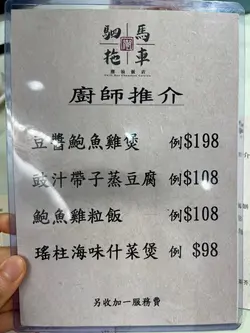 駟馬拖車
廚師推介
豆醬鮑魚雞煲 例$198
豉汁帶子蒸豆腐 例$108
鮑魚雞粒飯 例$108
瑤柱海味什菜煲 例$98
另收加一服務費